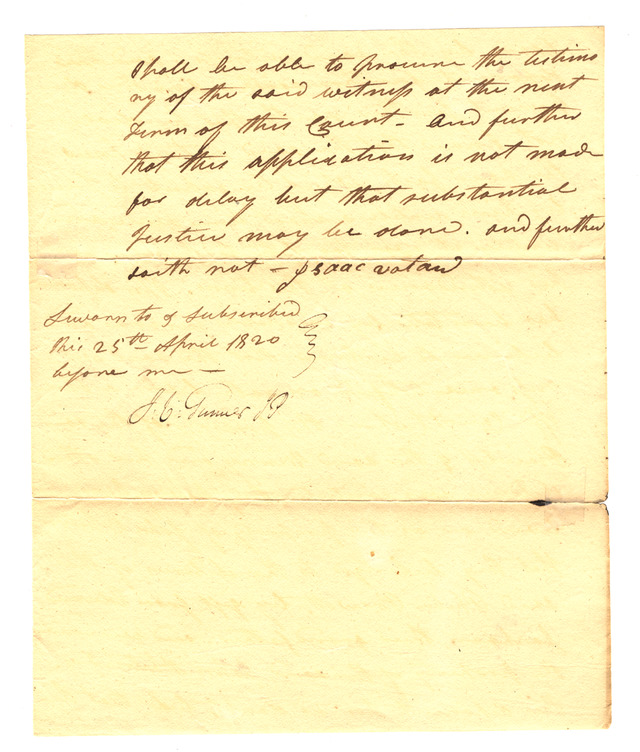 shall be able to procure the testimo
ny of the said witness at the next
Term of this Court - And further
that this application is not made
for delay but that substantial
Justice may be done. and further
saith not - Isaac votaw
Sworn to & Subscribed
this 25th April 1820
before me -
J. C. Turner JP